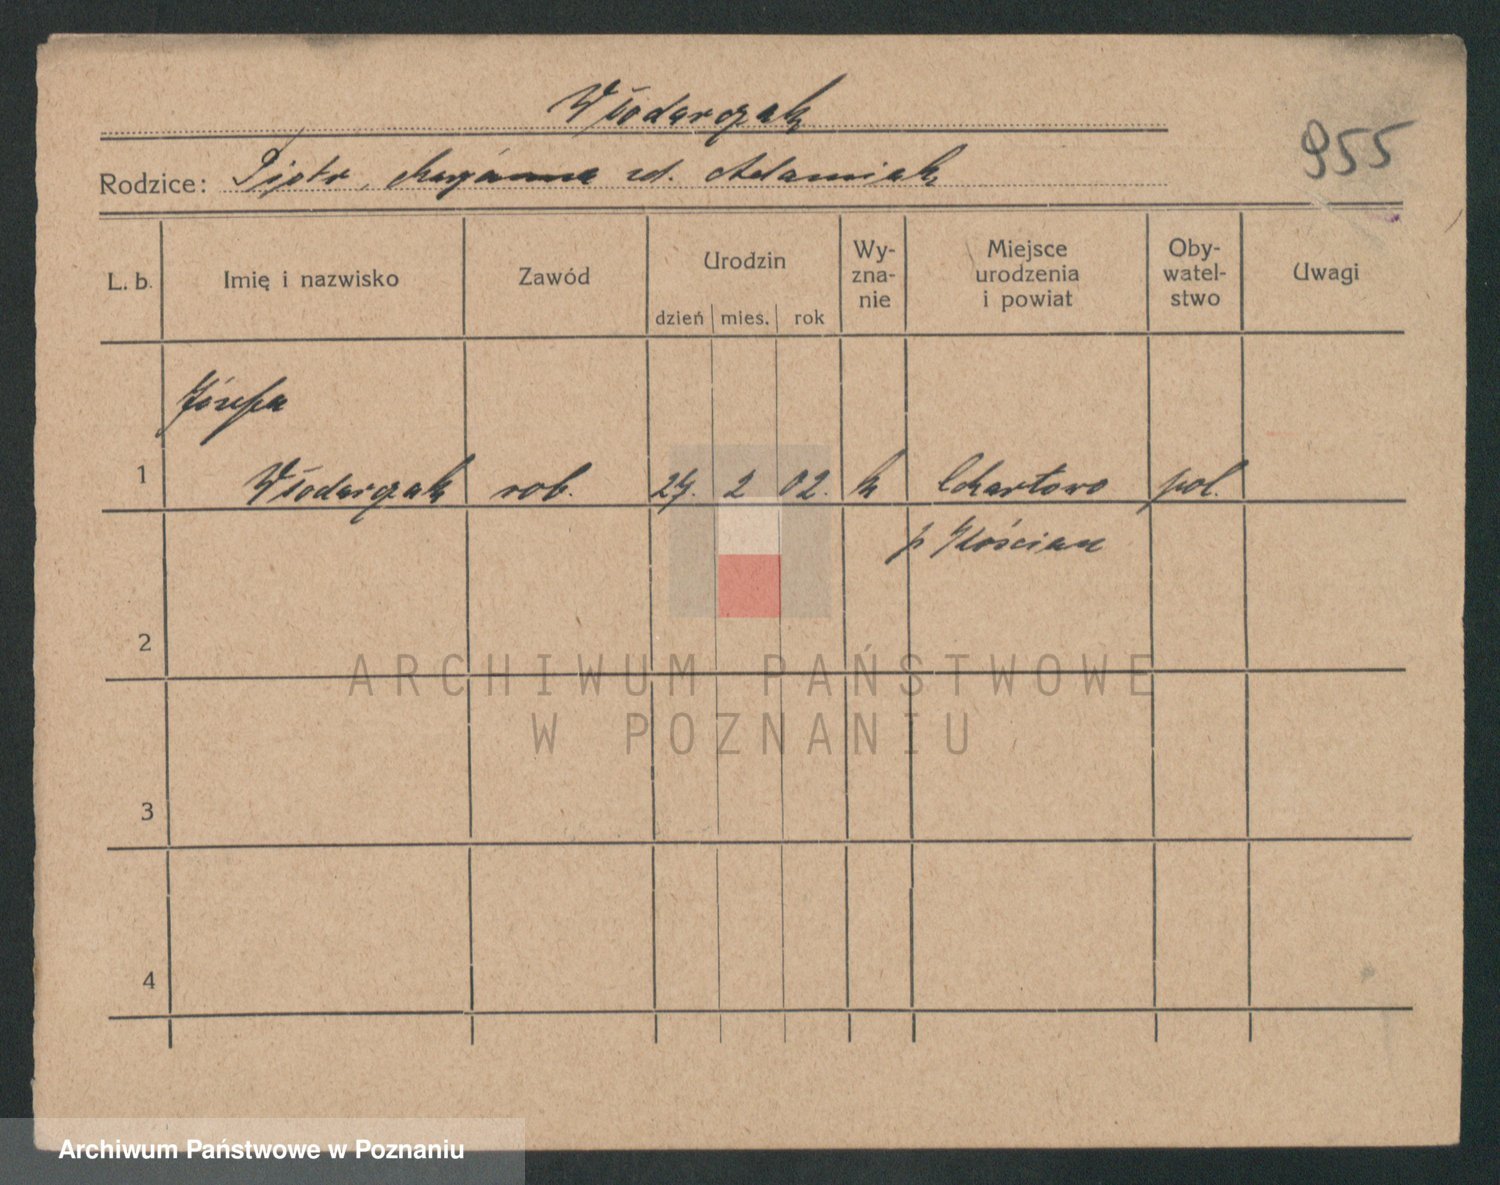 Włodarczak
955
Rodzice: Piotr, Marjanna zd. Adamiak
L. b. Imię i nazwisko Zawód Urodzin dzień mies. rok Wy-zna-nie Miejsce urodzenia i powiat Oby-watel-stwo Uwagi
Józefa
1 Włodarczak rob. 24. 2 02. k Czkartowo pol.
p Kościan
2
ARCHIWUM PAŃSTWOWE
W POZNANIU
3
4
Archiwum Państwowe w Poznaniu